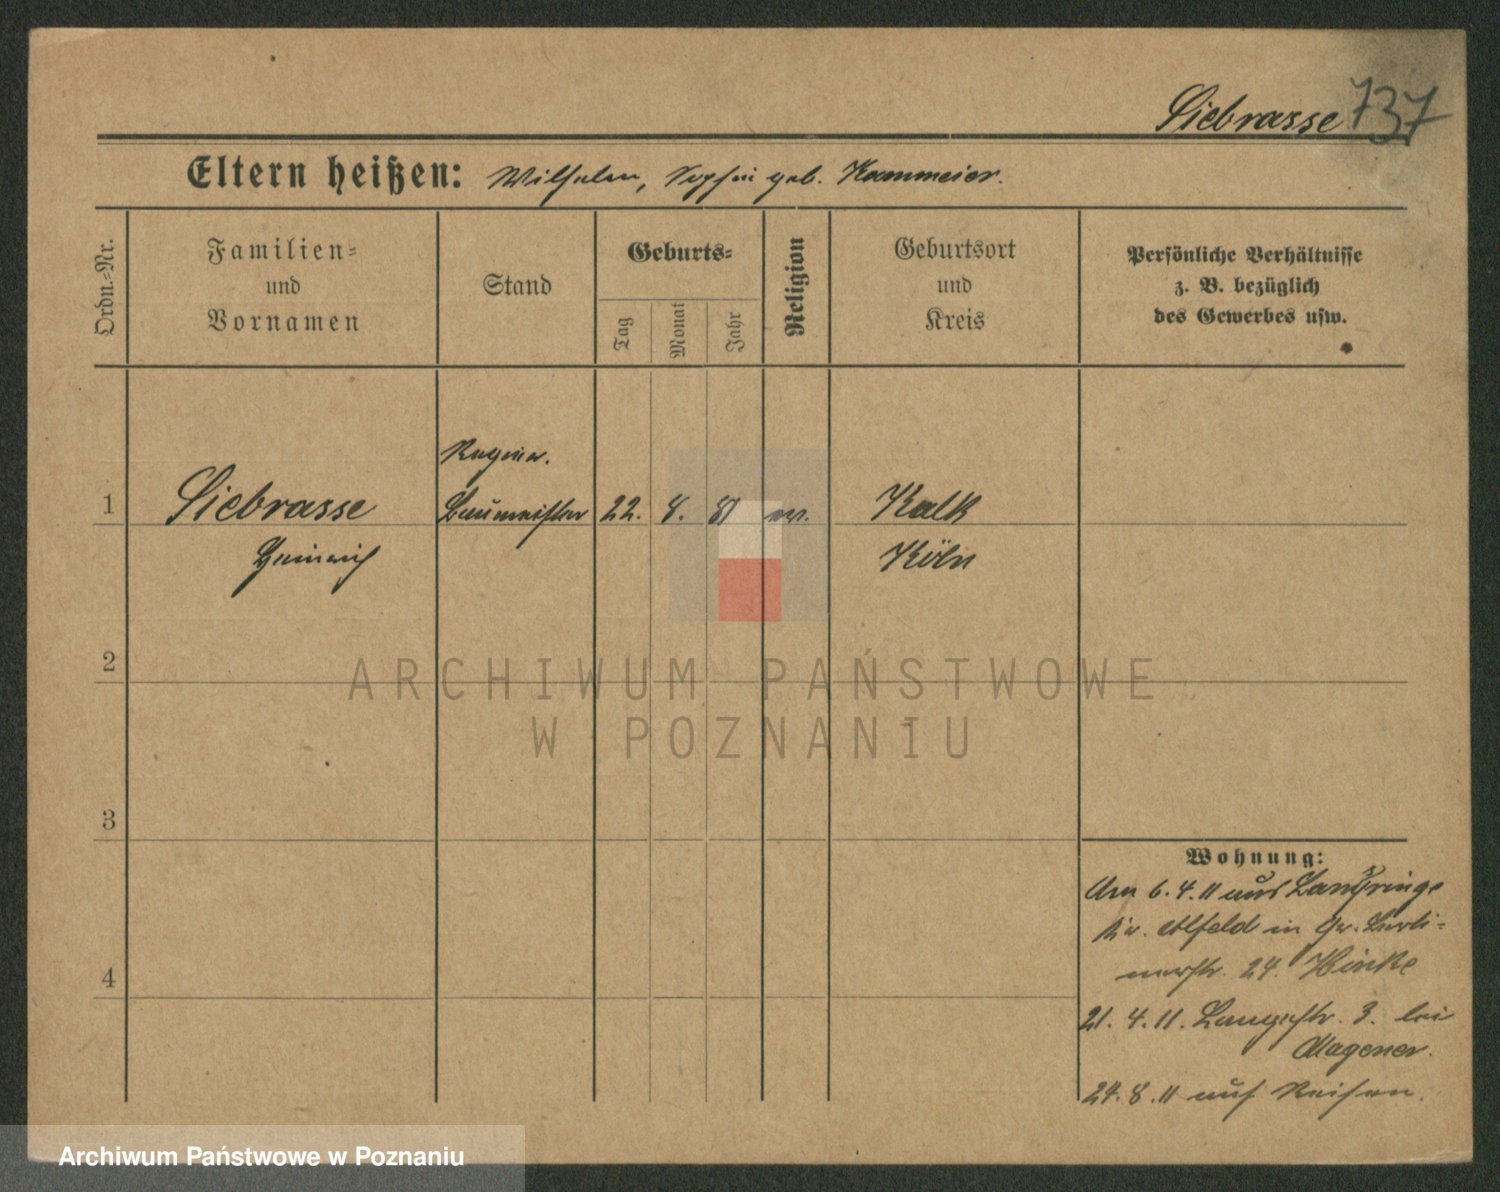 Siebrasse 737
Eltern heißen: Wilhelm, Sophie geb. Kammeier.
Ordn.-Nr.
Familien-
und
Vornamen
Stand
Geburts-
Tag
Monat
Jahr
Religion
Geburtsort
und
Kreis
Persönliche Verhältnisse
z. B. bezüglich
des Gewerbes usw.
Regier.
1 Siebrasse Baumeister 22. 8. 81 ev. Kalk
Heinrich Köln
2
3
4
Wohnung:
Am 6.4.11 aus
Kr. Alfeld in Gr. Berli-
nerstr. 24. Hinke
21. 4. 11. Langestr. 3. bei
Wagener.
24. 8. 11 auf Reisen.
ARCHIWUM PAŃSTWOWE
W POZNANIU
Archiwum Państwowe w Poznaniu